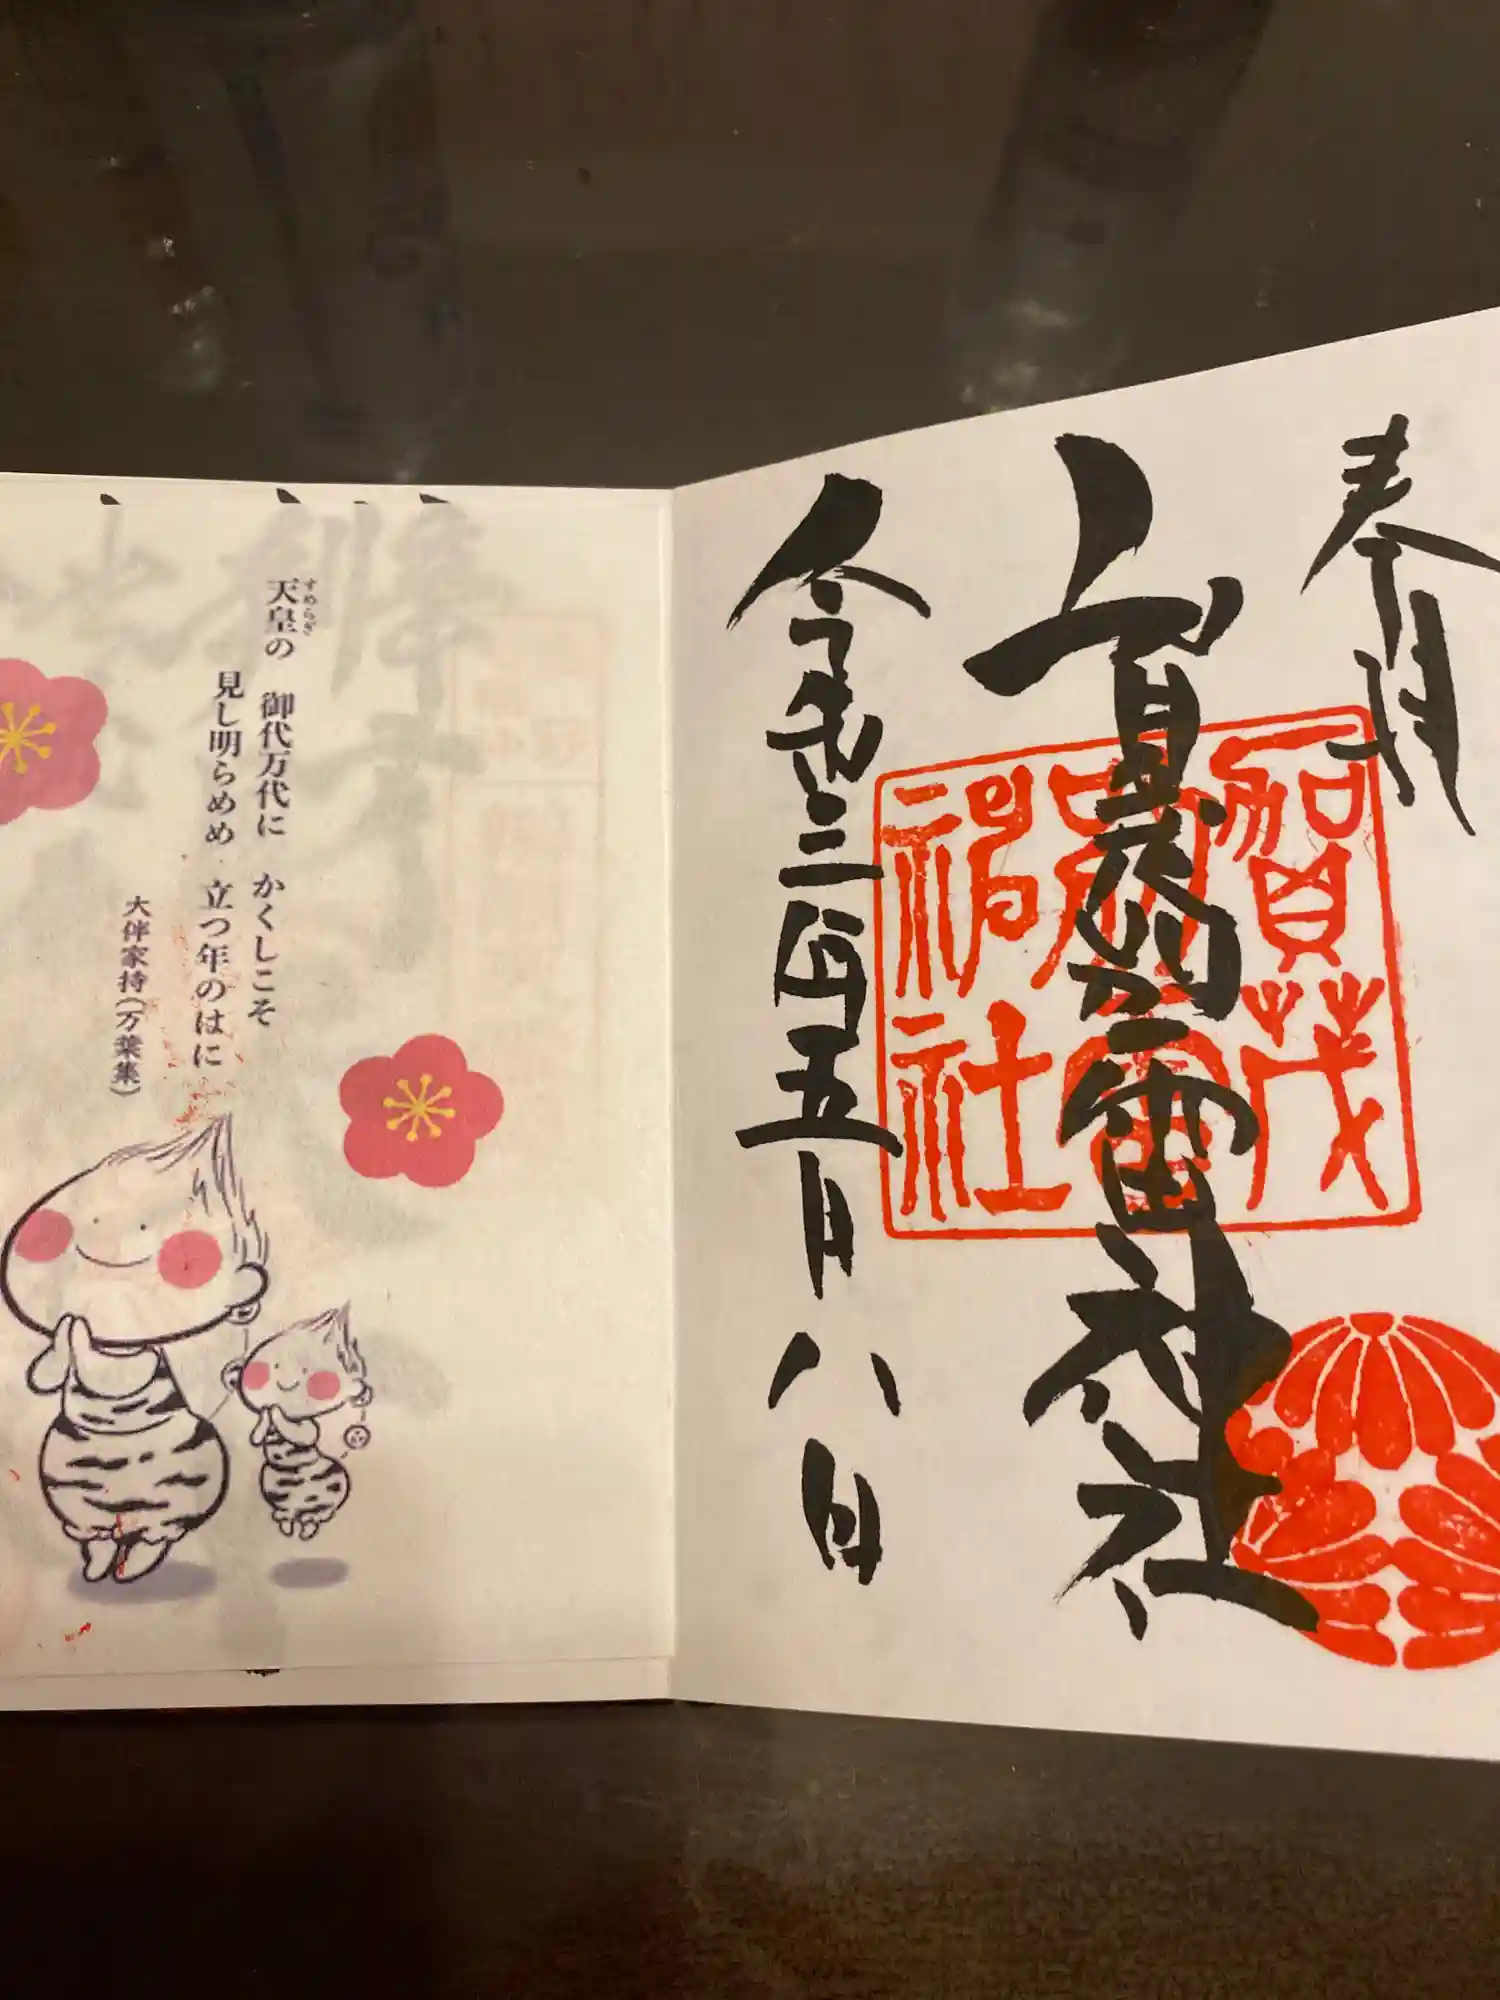 奉拝
賀茂別雷神社
賀茂
別雷
神社
令和三年五月八日
天皇の 御代万代に かくしこそ
すめらぎ
見し明らめめ 立つ年のはに
大伴家持(万葉集)